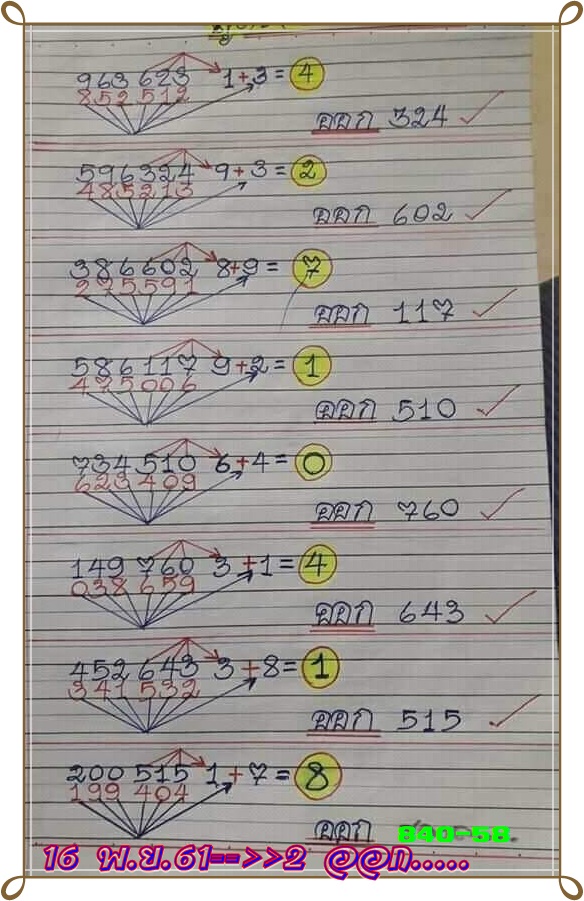 963 623 1+3= 4
852 512
ออก 324
596324 9+3= 2
485213
ออก 602
386 602 8+9= 7
275591
ออก 117
586117 9+2= 1
475006
ออก 510
734510 6+4= 0
623 409
ออก 760
149 760 3+1= 4
038 659
ออก 643
452643 3+8= 1
341 532
ออก 515
200 515 1+7= 8
199 404
ออก 840-58.
16 พ.ย.61==>>2 ออก.....